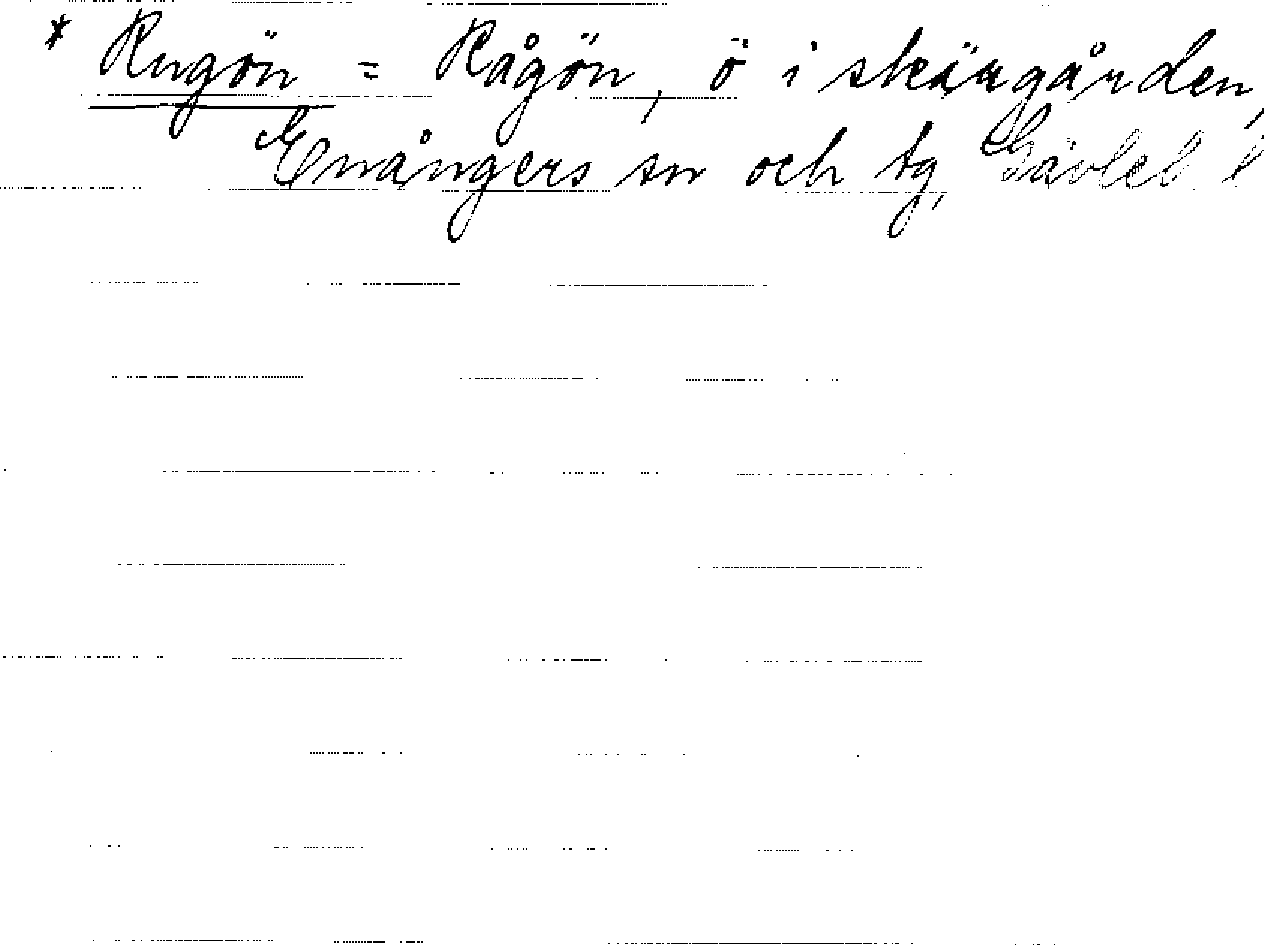 * Rugön = Rågön, ö i skärgården,
Enångers sn och tg, Gävleb l